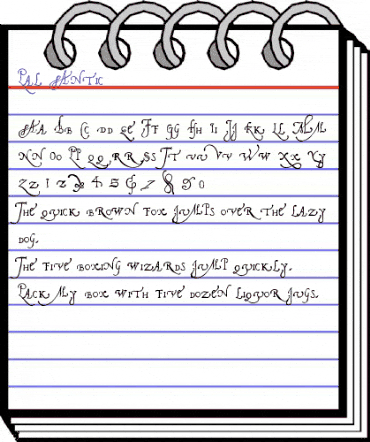 PAL ANTIC
AA BB CC DD EE FF GG HH II JJ KK LL MM
NN OO PP QQ RR SS TT UU VV WW XX YY
ZZ 1 2 3 4 5 6 7 8 9 0
THE QUICK BROWN FOX JUMPS OVER THE LAZY
DOG.
THE FIVE BOXING WIZARDS JUMP QUICKLY.
PACK MY BOX WITH FIVE DOZEN LIQUOR JUGS.